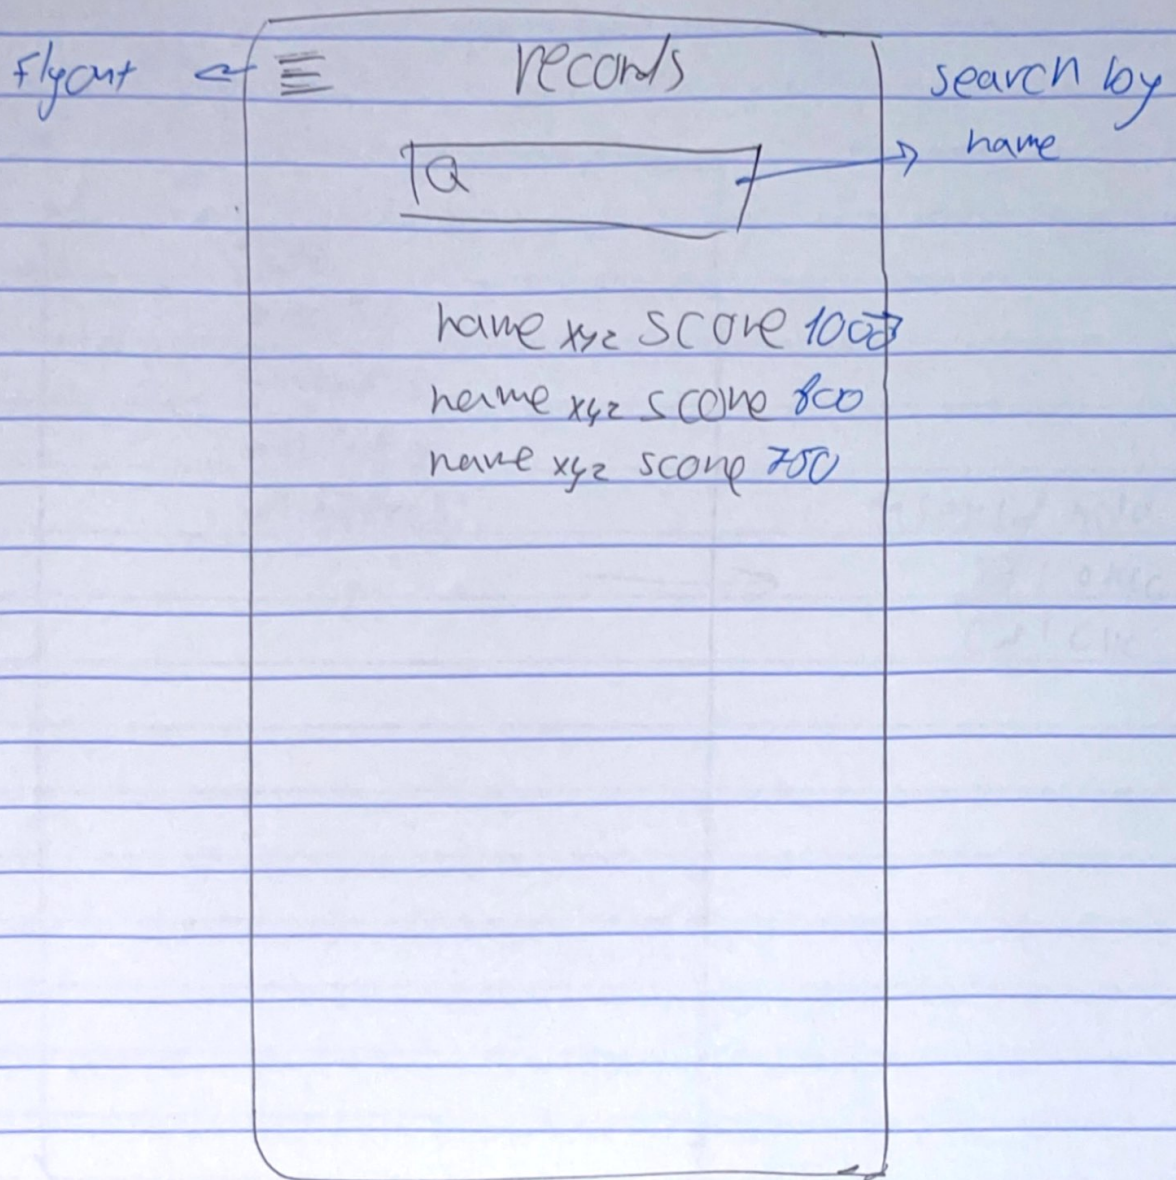 Flyout
records
search by
name
Q
name xyz score 1000
name xyz score 800
name xyz score 750